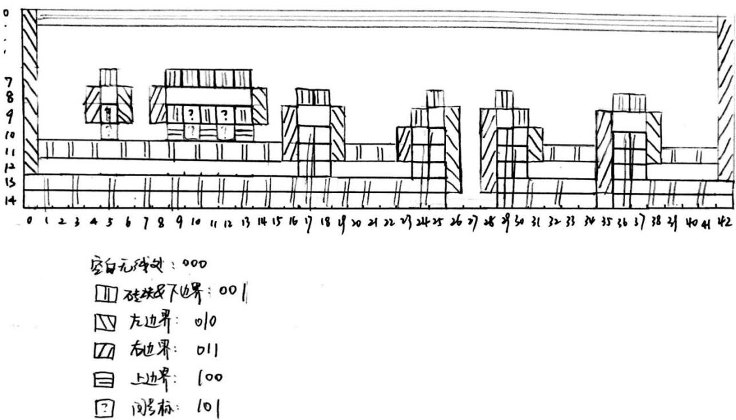 0
7
8
9
10
11
12
13
14
? ?
? ?
0 1 2 3 4 5 6 7 8 9 10 11 12 13 14 15 16 17 18 19 20 21 22 23 24 25 26 27 28 29 30 31 32 33 34 35 36 37 38 39 40 41 42
空白无线处:000
砖块及下边界:001
左边界:010
右边界:011
上边界:100
? 问号标:101